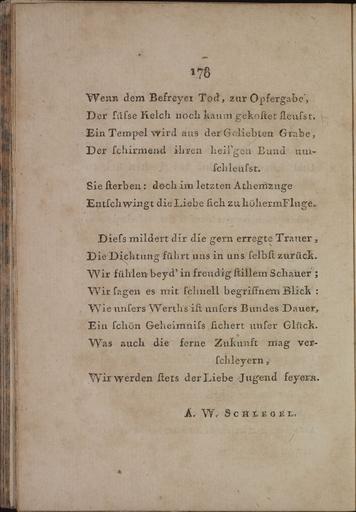 178
Wenn dem Befreyer Tod, zur Opfergabe,
Der ſüſse Kelch noch kaum gekoſtet fleuſst.
Ein Tempel wird aus der Geliebten Grabe,
Der ſchirmend ihren heil'gen Bund um-
ſchleuſst.
Sie ſterben: doch im letzten Athemzuge
Entſchwingt die Liebe ſich zu höherm Fluge.
Dieſs mildert dir die gern erregte Trauer,
Die Dichtung führt uns in uns ſelbſt zurück.
Wir fühlen beyd' in freudig ſtillem Schauer;
Wir ſagen es mit ſchnell begriffnem Blick:
Wie unſers Werths iſt unſers Bundes Dauer,
Ein ſchön Geheimniſs ſichert unſer Glück.
Was auch die ferne Zukunft mag ver-
ſchleyern,
Wir werden ſtets der Liebe Jugend feyern.
A. W. SCHLEGEL.